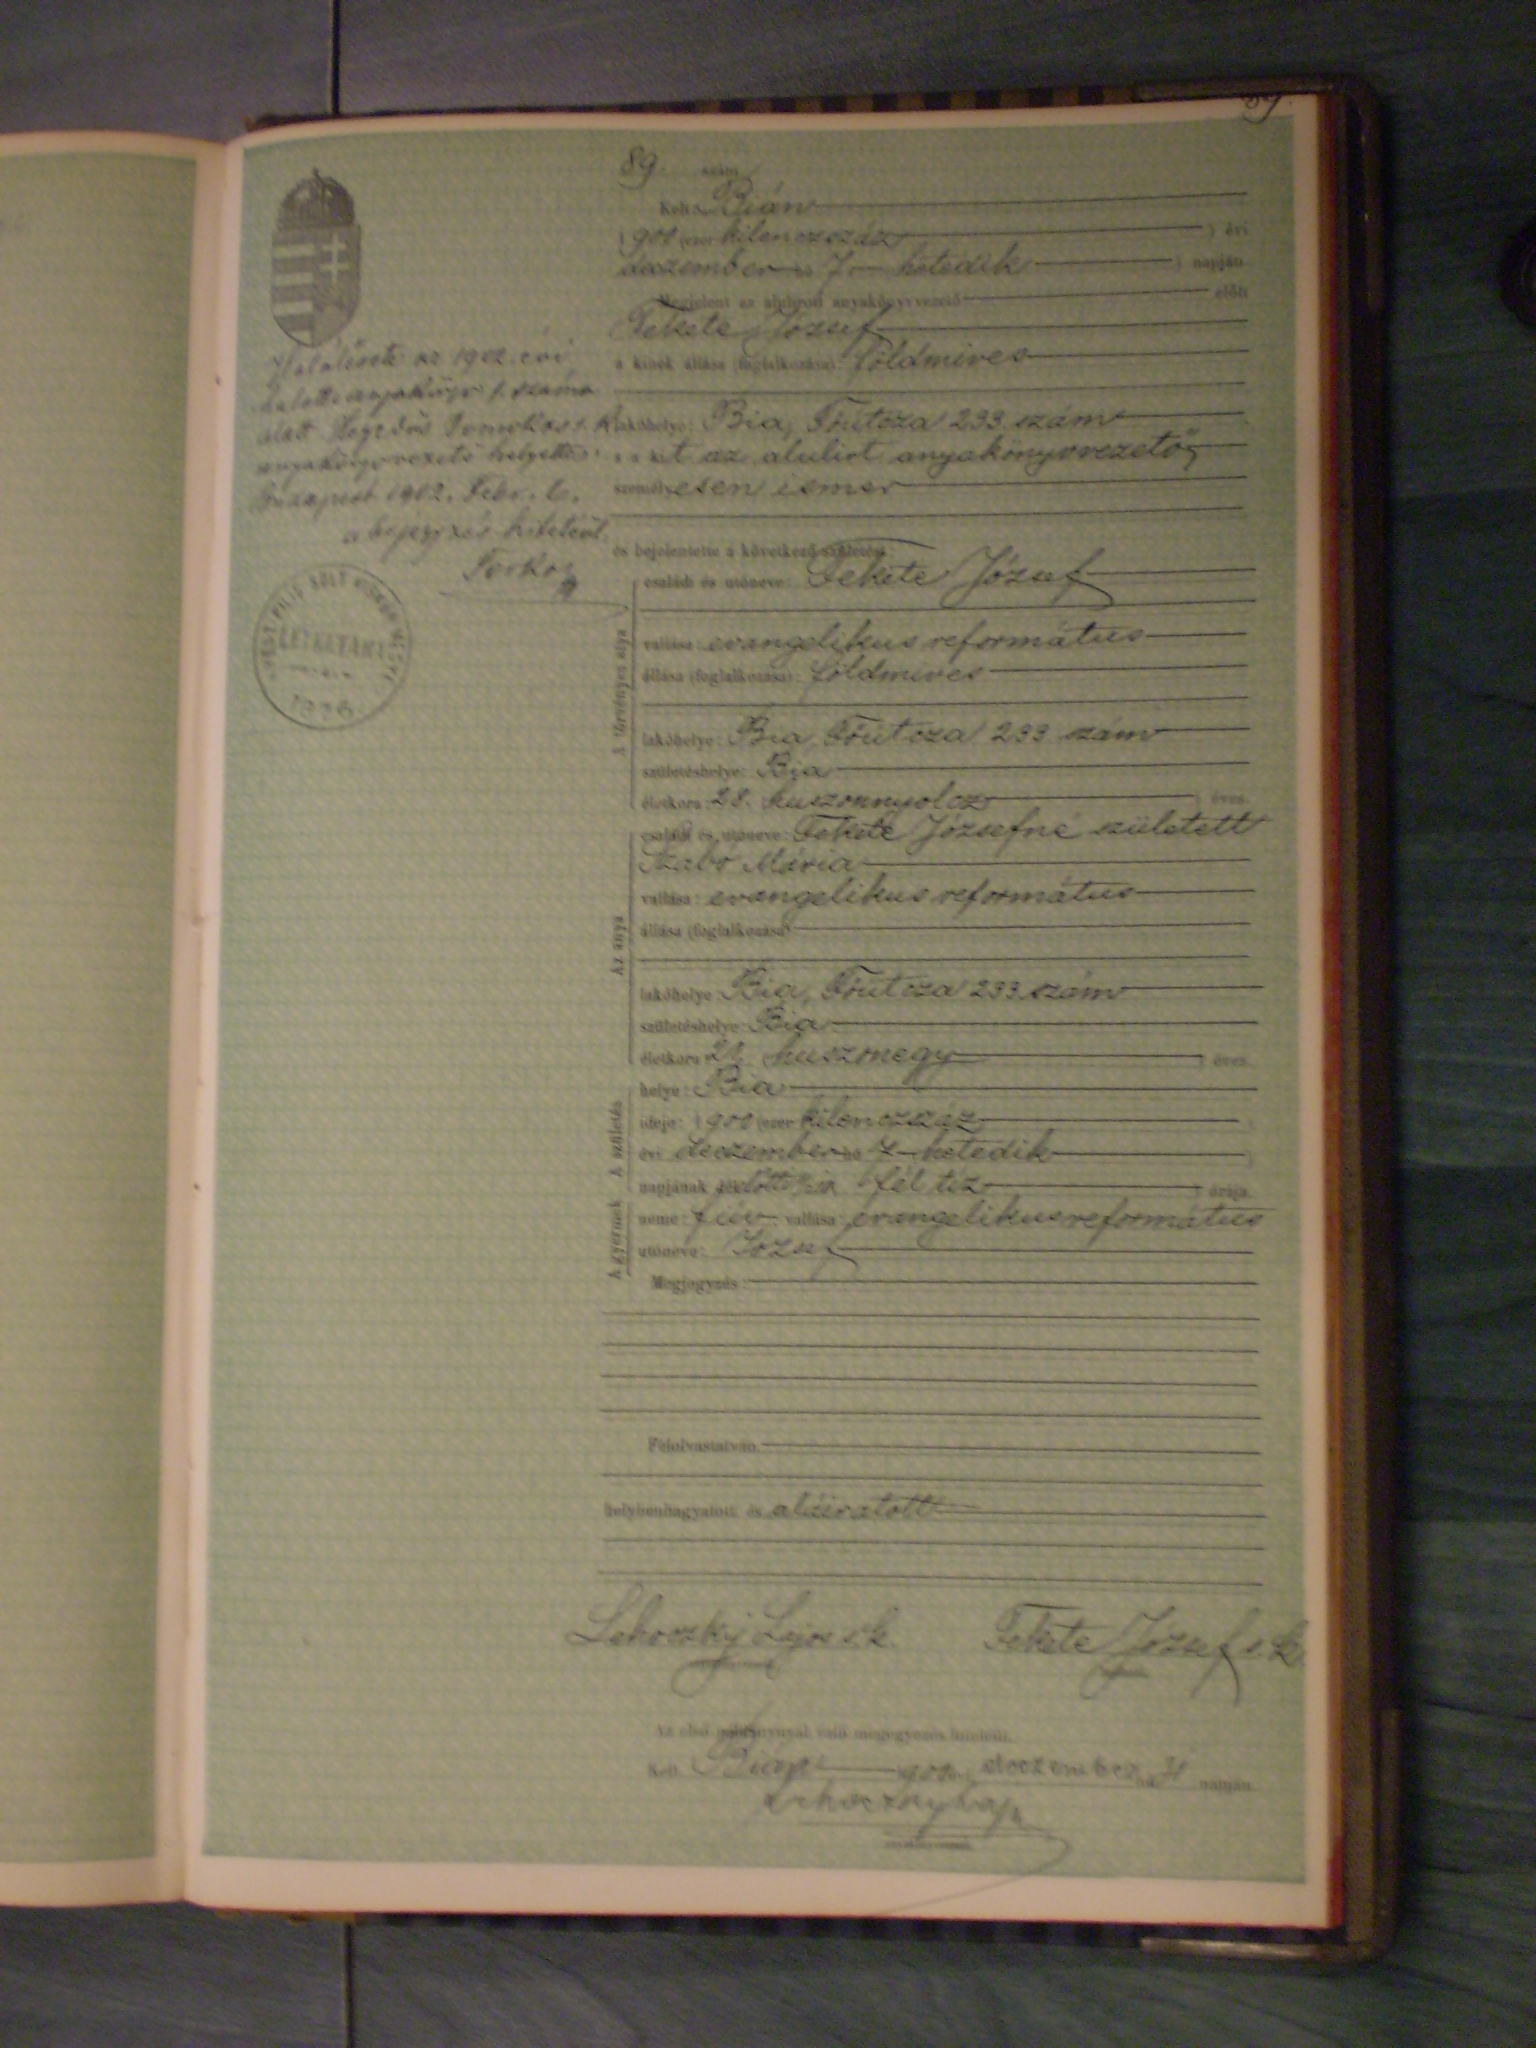 89.
89. szám
Kelt Bián
1900 (ezer kilenczszáz) évi
deczember hó 7 hetedik) napján.
Megjelent az alulirott anyakönyvvezető előtt
Fekete József
a kinek állása (foglalkozása): földmíves
lakóhelye: Bia, Főutcza 233. szám
a kit az alulírt anyakönyvvezető
személyesen ismer
és bejelentette a következő születést:
A törvényes atya
családi és utóneve: Fekete József
vallása: evangelikus református
állása (foglalkozása): földmíves
lakóhelye: Bia Főutcza 233 szám
születéshelye: Bia
életkora: 28. (huszonnyolcz) éves.
Az anya
családi és utóneve: Fekete Józsefné született
Szabó Mária
vallása: evangelikus református
állása (foglalkozása)
lakóhelye: Bia, Főutcza 233. szám
születéshelye: Bia
életkora: 21. (huszonegy) éves.
A születés
helye: Bia
ideje: 1900 (ezer kilenczszáz)
évi deczember hó 7 hetedik)
napjának délelőtti ½10 (fél tíz) órája.
A gyermek
neme: fiú vallása: evangelikus református
utóneve: József
Megjegyzés:
Felolvastatván,
helybenhagyatott és aláiratott
Lehoczky Lajos s.k. Fekete József s.k.
Az első példánynyal való megegyezés hiteléül.
Kelt Bián 900 deczember hó 31 napján.
Lehoczky Lajos
Halálesete az 1902. évi
halotti anyakönyv 1. száma
alatt
anyakönyvvezető helyettes.
Budapest 1902. Febr. 6.
a bejegyzés hiteléül.
PEST PILIS SOLT KISKUN MEGYE
LEVÉLTÁRA
1876